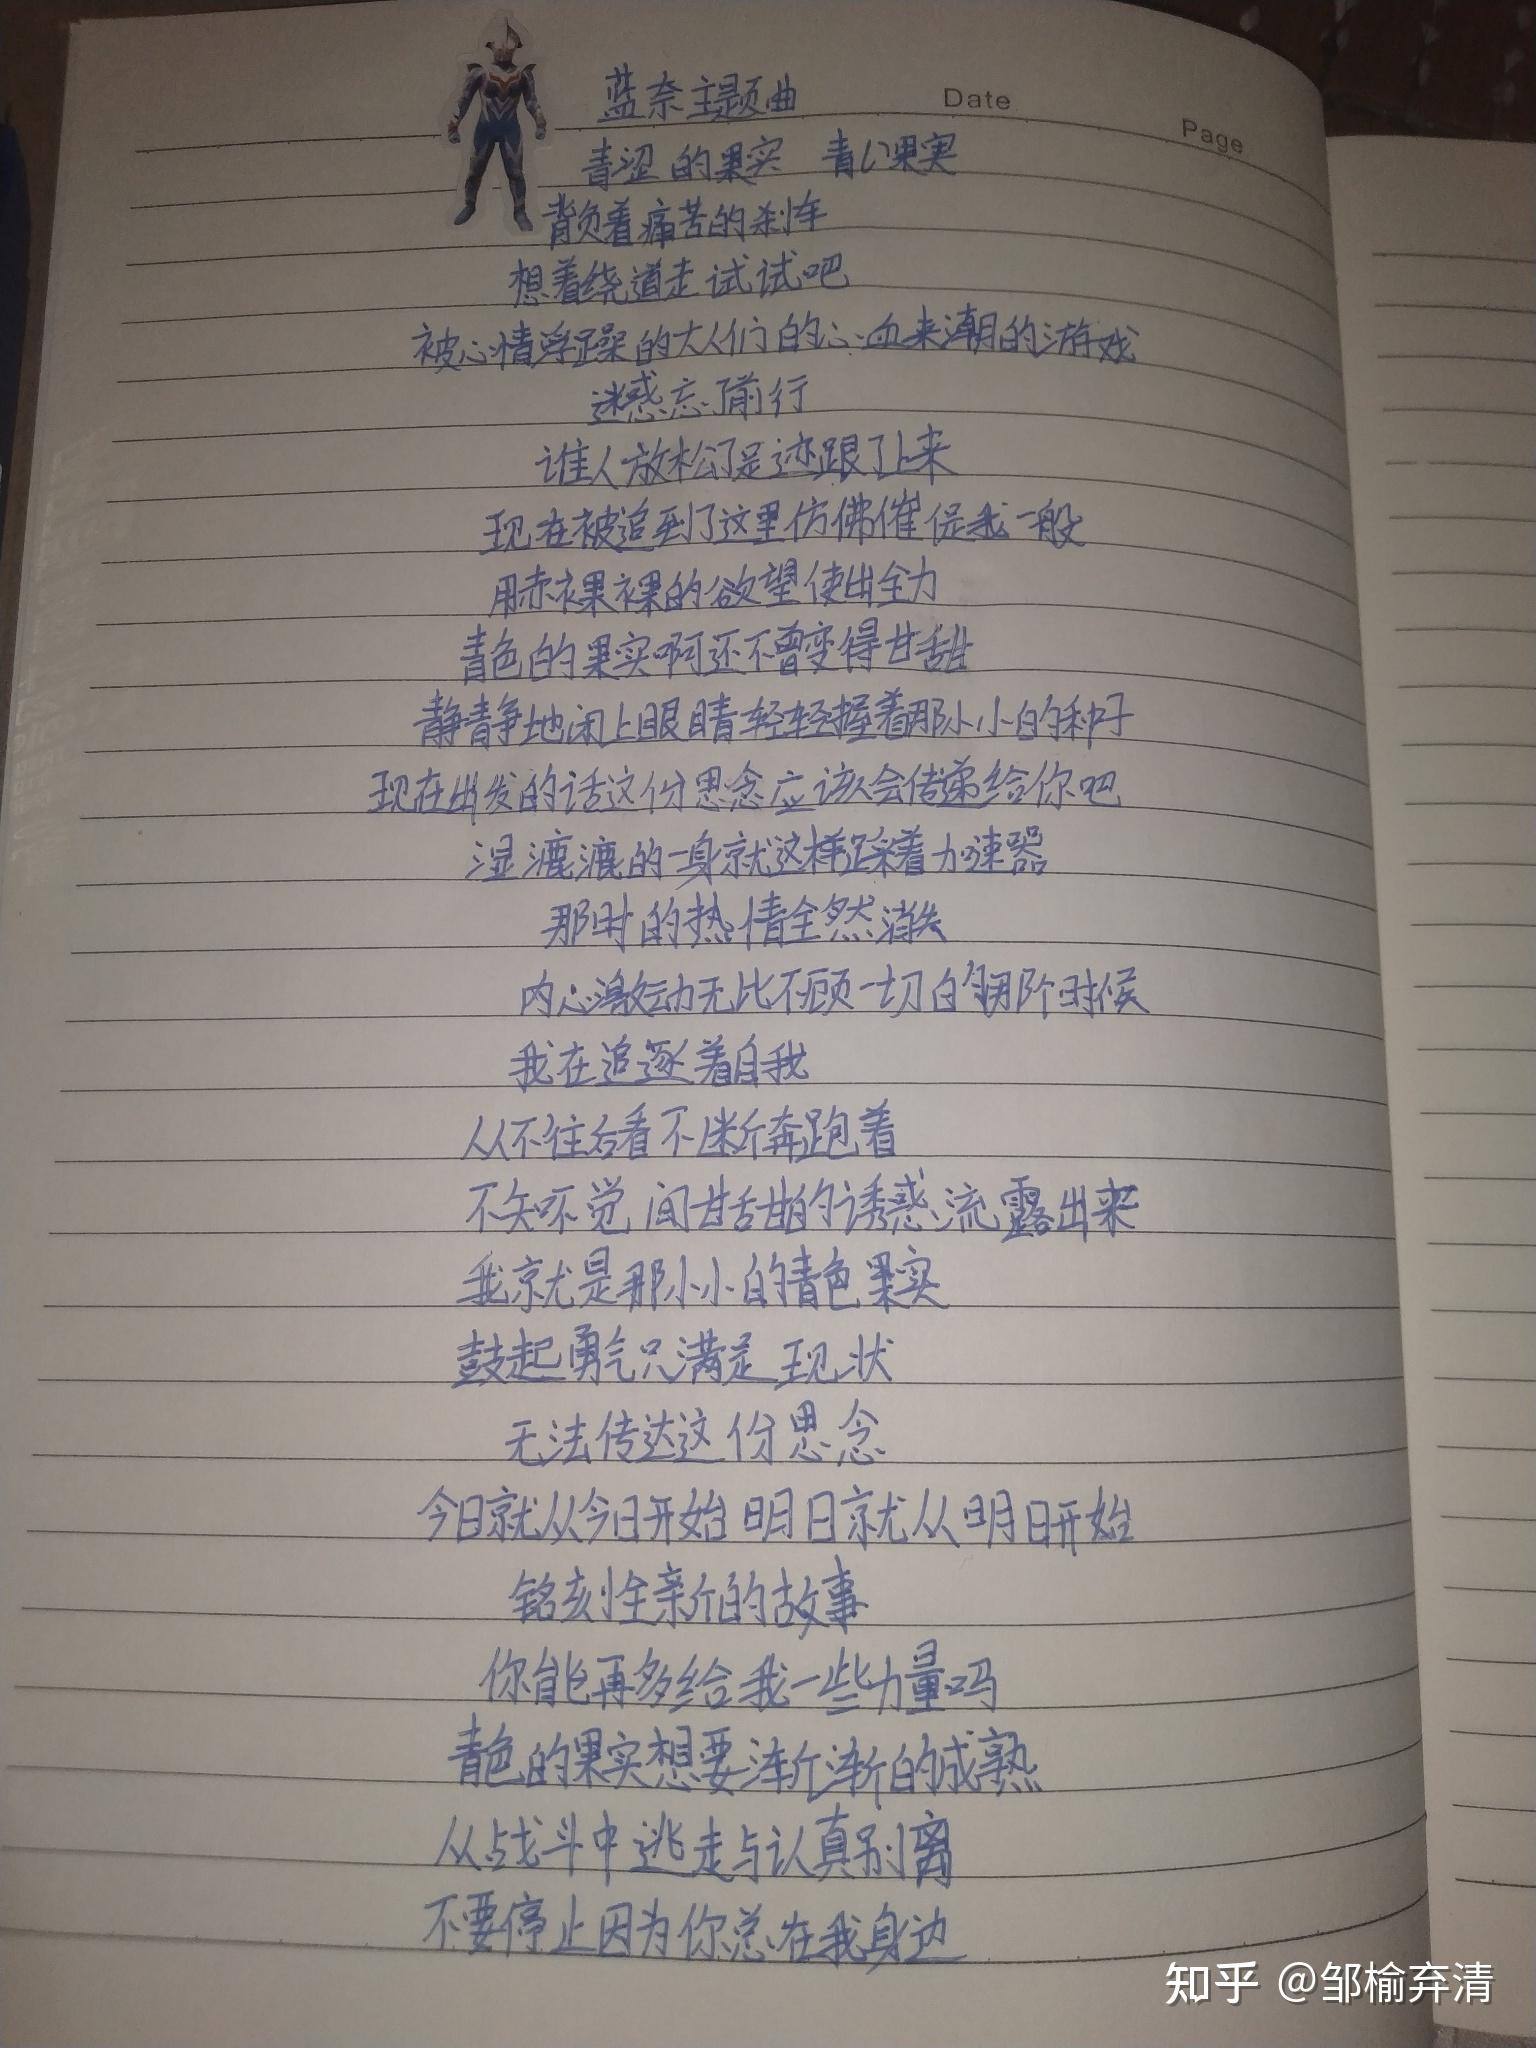 蓝奈主题曲
Date
Page
青涩的果实 青い果実
背负着痛苦的刹车
想着绕道走试试吧
被心情浮躁的大人们的心血来潮的游戏
迷惑忘了前行
谁人放松了足迹跟了上来
现在被追到了这里仿佛催促我一般
用赤裸裸的欲望使出全力
青色的果实啊还不曾变得甘甜
静静地闭上眼睛轻轻握着那小小的种子
现在出发的话这份思念应该会传递给你吧
湿漉漉的一身就这样踩着加速器
那时的热情全然消失
内心激动无比不顾一切的那个时候
我在追逐着自我
从不往后看不断奔跑着
不知不觉间甘甜的诱惑流露出来
我就是那小小的青色果实
鼓起勇气只满足现状
无法传达这份思念
今日就从今日开始 明日就从明日开始
铭刻全新的故事
你能再多给我一些力量吗
青色的果实想要渐渐的成熟
从战斗中逃走与认真别离
不要停止因为你总在我身边
知乎 @邹榆弃清